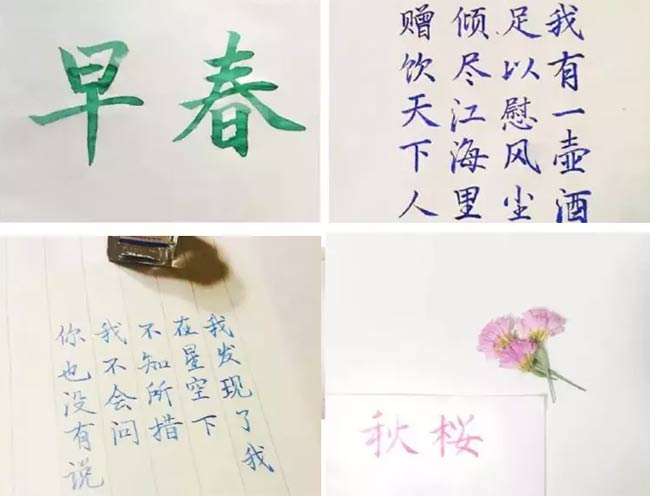 早春
我有一壶酒
足以慰风尘
倾尽江海里
赠饮天下人
我发现了我
在星空下
不知所措
我不会问
你也没有说
秋桜